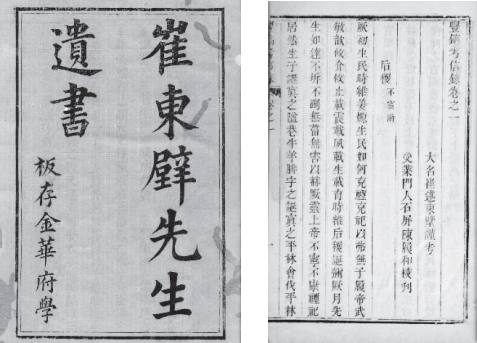 崔東壁先生
遺書
板存金華府學
豐鎬考信錄卷之一
大名崔述東壁謹考
受業門人石屏陳履和校刊
后稷 不窋附
厥初生民時維姜嫄生民如何克禋克祀以弗無子履帝武
敏歆攸介攸止載震載夙載生載育時維后稷誕彌厥月先
生如達不坼不副無菑無害以赫厥靈上帝不寧不康禋祀
居然生子誕寘之隘巷牛羊腓字之誕寘之平林會伐平林